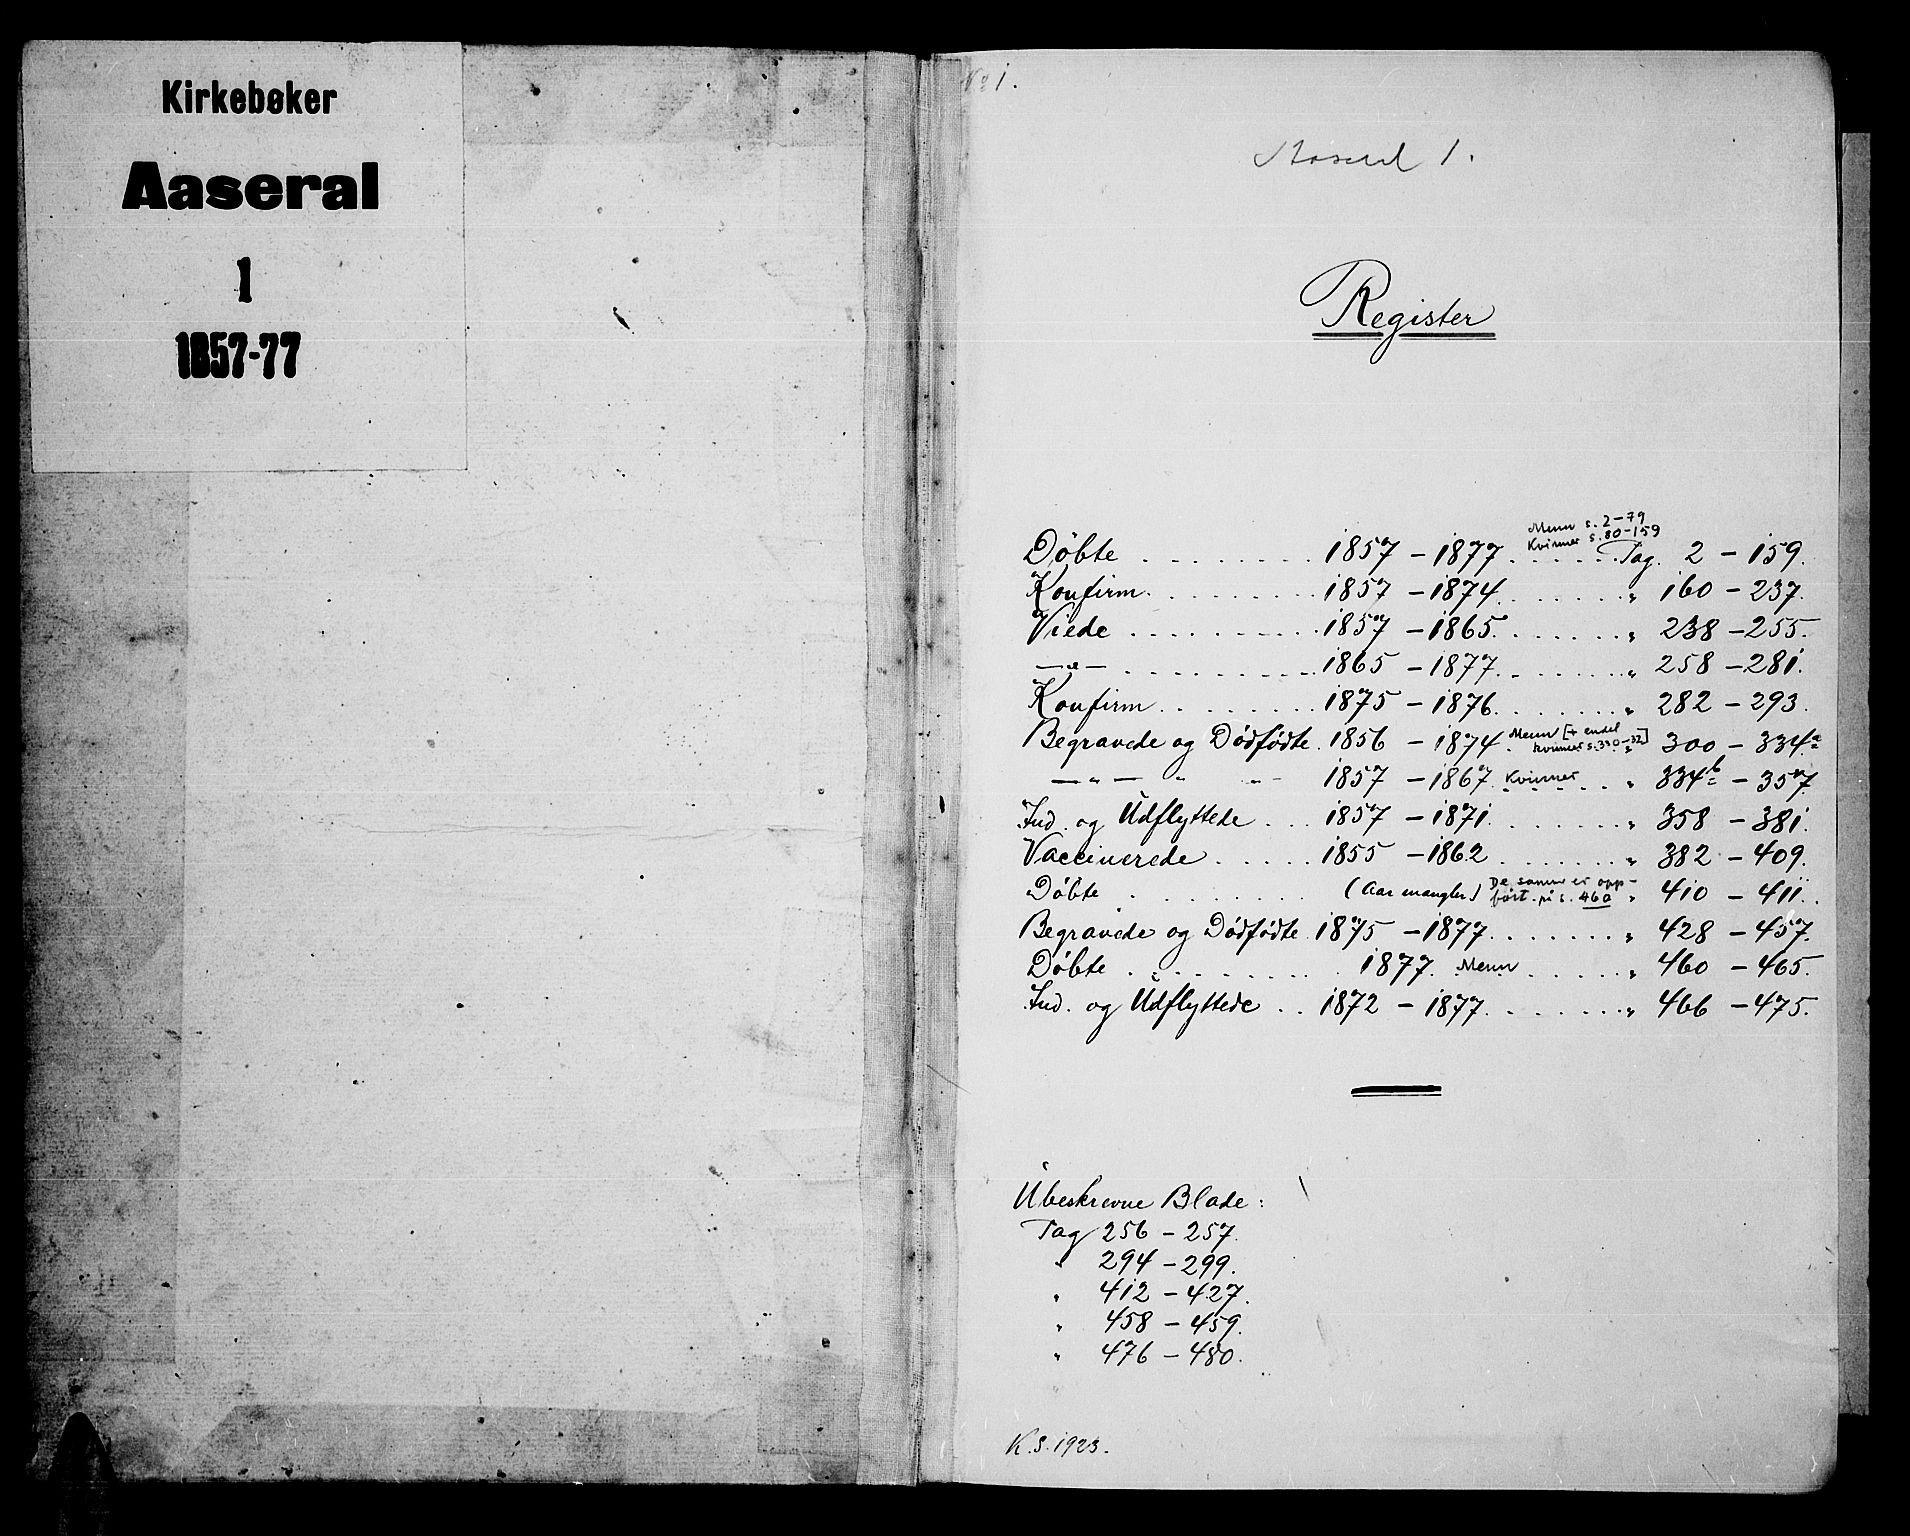 Kirkebøker
Aaseral
1
1857-77
No 1.
Aaseral 1.
Register
Døbte . . . . . . . . 1857 - 1877 Menn s. 2-79 Kvinner s. 80-159 . . . . . . Pag. 2 - 159.
Konfirm. . . . . . . . . 1857 - 1874 . . . . . . . " 160 - 237.
Viede . . . . . . . . . 1857 - 1865. . . . . . . " 238 - 255.
—"— . . . . . . . . . 1865 - 1877. . . . . . . " 258 - 281.
Konfirm . . . . . . . . 1875 - 1876. . . . . . . " 282 - 293.
Begravede og Dødfødte. 1856 - 1874 Menn [+ endel kvinner s. 330-32] " 300 - 334a
—"— " —"— 1857 - 1867 Kvinner . . . " 334b - 357
Ind. og Udflyttede . . . 1857 - 1871. . . . . . . " 358 - 381.
Vaccinerede . . . . . 1855 - 1862 . . . . . . . " 382 - 409.
Døbte . . . . . . . . (Aar mangler) De samme er opp- ført på s. 460 " 410 - 411.
Begravede og Dødfødte 1875 - 1877. . . . . . . " 428 - 457.
Døbte . . . . . . . . . 1877. Menn . . . . . " 460 - 465.
Ind. og Udflyttede . . 1872 - 1877. . . . . . . " 466 - 475.
Ubeskrevne Blade:
Pag 256 - 257.
" 294 - 299.
" 412 - 427.
" 458 - 459.
" 476 - 480.
K.S. 1923.